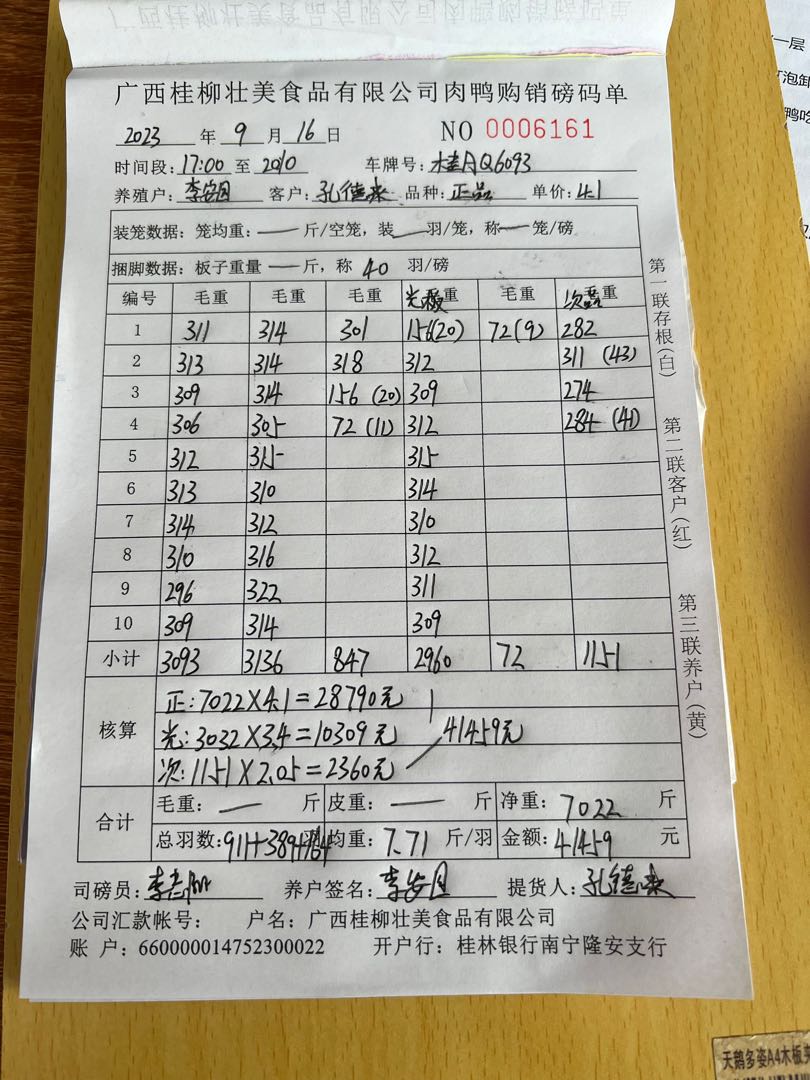 广西桂柳壮美食品有限公司肉鸭购销磅码单
2023 年 9 月 16 日 NO 0006161
时间段: 17:00 至 2010 车牌号: 桂AQ6093
养殖户: 李安月 客户: 孔德来 品种: 正品 单价: 4.1
装笼数据: 笼均重: — 斤/空笼, 装 — 羽/笼, 称 — 笼/磅
捆脚数据: 板子重量 — 斤, 称 40 羽/磅
编号 毛重 毛重 毛重 光板 毛重 次品
1 311 314 301 156(20) 72(9) 282
2 313 314 318 312 311 (43)
3 309 314 156 (20) 309 274
4 306 305 72 (11) 312 284 (41)
5 312 315 315
6 313 310 314
7 314 312 310
8 310 316 312
9 296 322 311
10 309 314 309
小计 3093 3136 847 2960 72 1151
核算
正: 7022×4.1=28790元
光: 3032×3.4=10309元 41459元
次: 1151×2.05=2360元
合计
毛重: — 斤 皮重: — 斤 净重: 7022 斤
总羽数: 911+389+164 羽 均重: 7.71 斤/羽 金额: 41459 元
司磅员: 养户签名: 李安月 提货人: 孔德来
公司汇款帐号: 户名: 广西桂柳壮美食品有限公司
账 户: 660000014752300022 开户行: 桂林银行南宁隆安支行
第一联存根(白)
第二联客户(红)
第三联养户(黄)
一层
泡卸
鸭吃
天鹅多姿A4木板夹